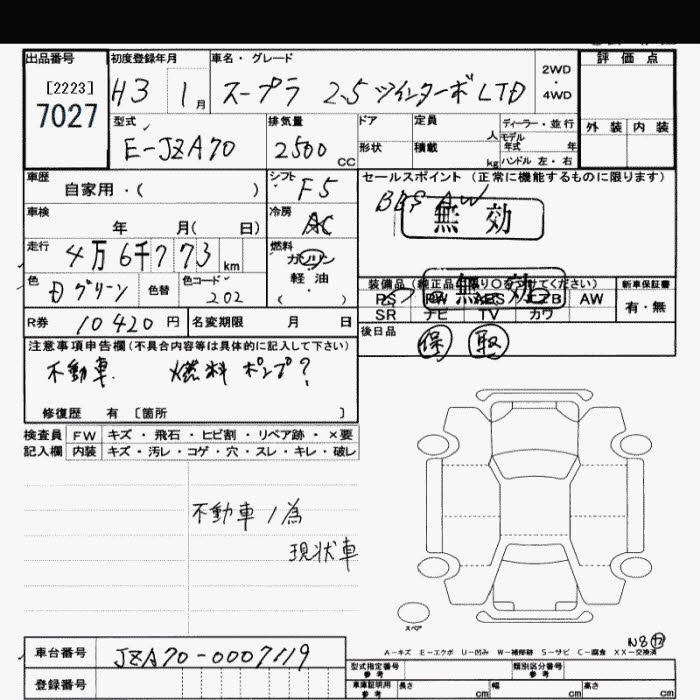 出品番号 初度登録年月 車名・グレード 2WD・4WD 評価点
[2223] 7027 H3 1月 スープラ 2.5 ツインターボ LTD
型式 排気量 ドア 定員 人 ディーラー・並行 外装 内装
E-JZA70 2500 CC 形状 積載 kg モデル年式 年 ハンドル 左・右
車歴 自家用・( ) シフト F5 セールスポイント(正常に機能するものに限ります)
車検 年 月( 日) 冷房 AC BBS AW 無効
走行 4万6千773km 燃料 ガソリン 軽油 ( )
色 Dグリーン 色替 色コード 202 装備品(純正品 ください) 新車保証書
PS PW ABS エアB AW 有・無
無効
SR ナビ TV カワ
R券 10420円 名変期限 月 日 後日品
保 取
注意事項申告欄(不具合内容等は具体的に記入して下さい)
不動車. 燃料ポンプ?
修復歴 有 〔箇所 〕
検査員 FW キズ・飛石・ヒビ割・リペア跡・×要
記入欄 内装 キズ・汚レ・コゲ・穴・スレ・キレ・破レ
不動車ノ為
現状車
スペア
N8
A-キズ E-エクボ U-凹み W-補修跡 S-サビ C-腐食 XX-交換済
車台番号 JZA70-0007119
型式指定番号 参考 類別区分番号 参考
登録番号 車庫証明用 参考 長さ cm 幅 cm 高さ cm